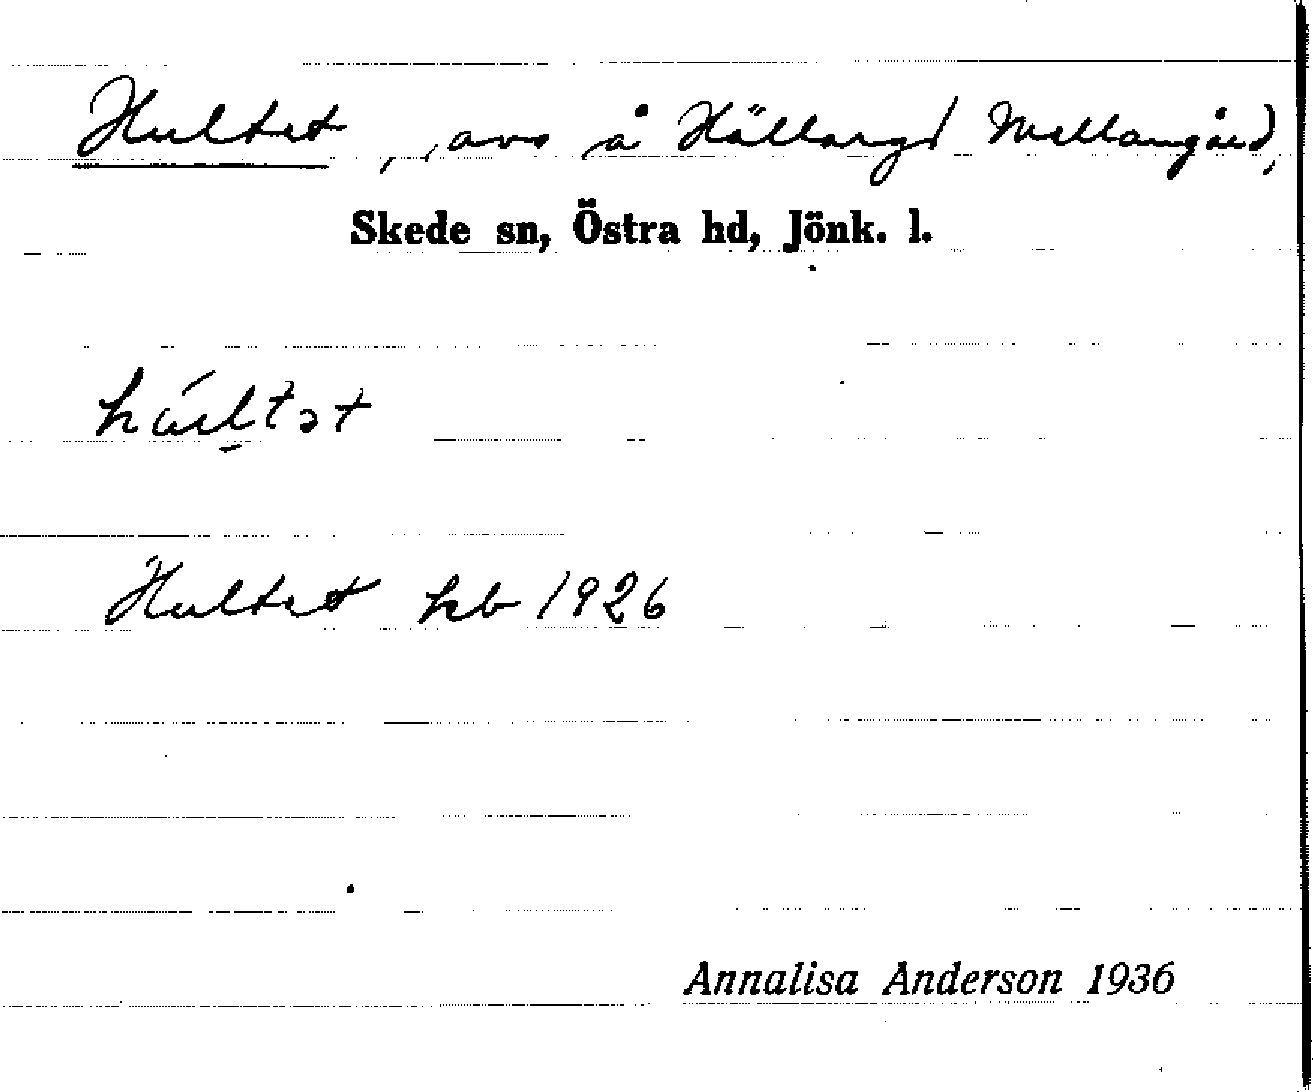 Hultet, avs å Hällargd Mellangård,
Skede sn, Östra hd, Jönk. l.
húltət
Hultet kb 1926
Annalisa Anderson 1936